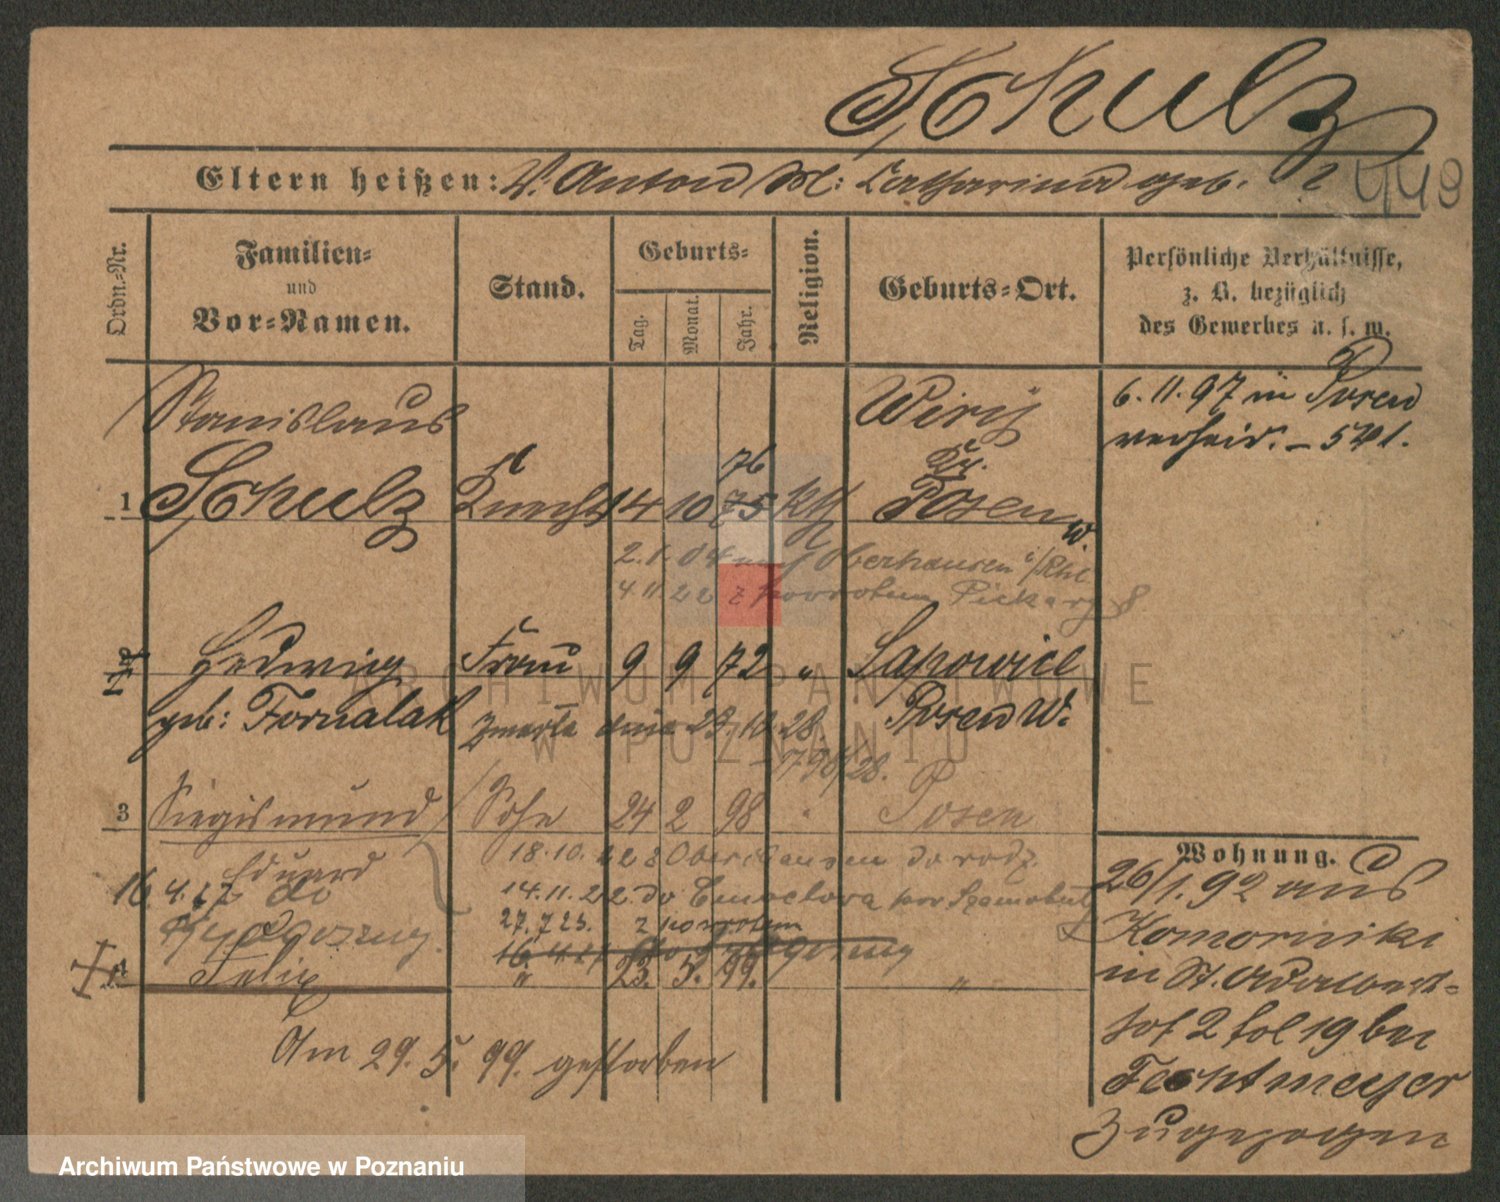 Schulz
Eltern heißen: V. Anton M: Catharina geb. ?
448
Ordn.-Nr.
Familien-
und
Vor-Namen.
Stand.
Geburts-
Tag.
Monat.
Jahr.
Religion.
Geburts-Ort.
Persönliche Verhältnisse,
z. B. bezüglich
des Gewerbes u. s. w.
Stanislaus
Schulz
1
Knecht
14 10 75
76
kth
Wirij
Kr.
Posen
W.
6. 11. 97 in Posen
verheir. – 541.
2. 1. 04 Oberhausen i/Rhl
4 11 22 z powrotem Piekary 8
Hedwig
geb: Fornalak
Frau
9 9 72 "
Sapowice
Posen W.
Zmarła dnia 29. 10. 28
3
Siegismund
Sohn
24 2 98 "
Posen
Eduard
18. 10. 22 z Oberhausen do rodz.
14. 11. 22 do
27. 7 23. z powrotem
16. 4. 27 do
Bydgoszczy.
4
Felix
"
23. 5. 99.
"
Am 29. 5. 99. gestorben
Wohnung.
26/1. 92 aus
Komorniki
in St. Adalbert-
hof 2 fol 19 bei
Fechtmeyer
zugezogen
ARCHIWUM PAŃSTWOWE
W POZNANIU
Archiwum Państwowe w Poznaniu